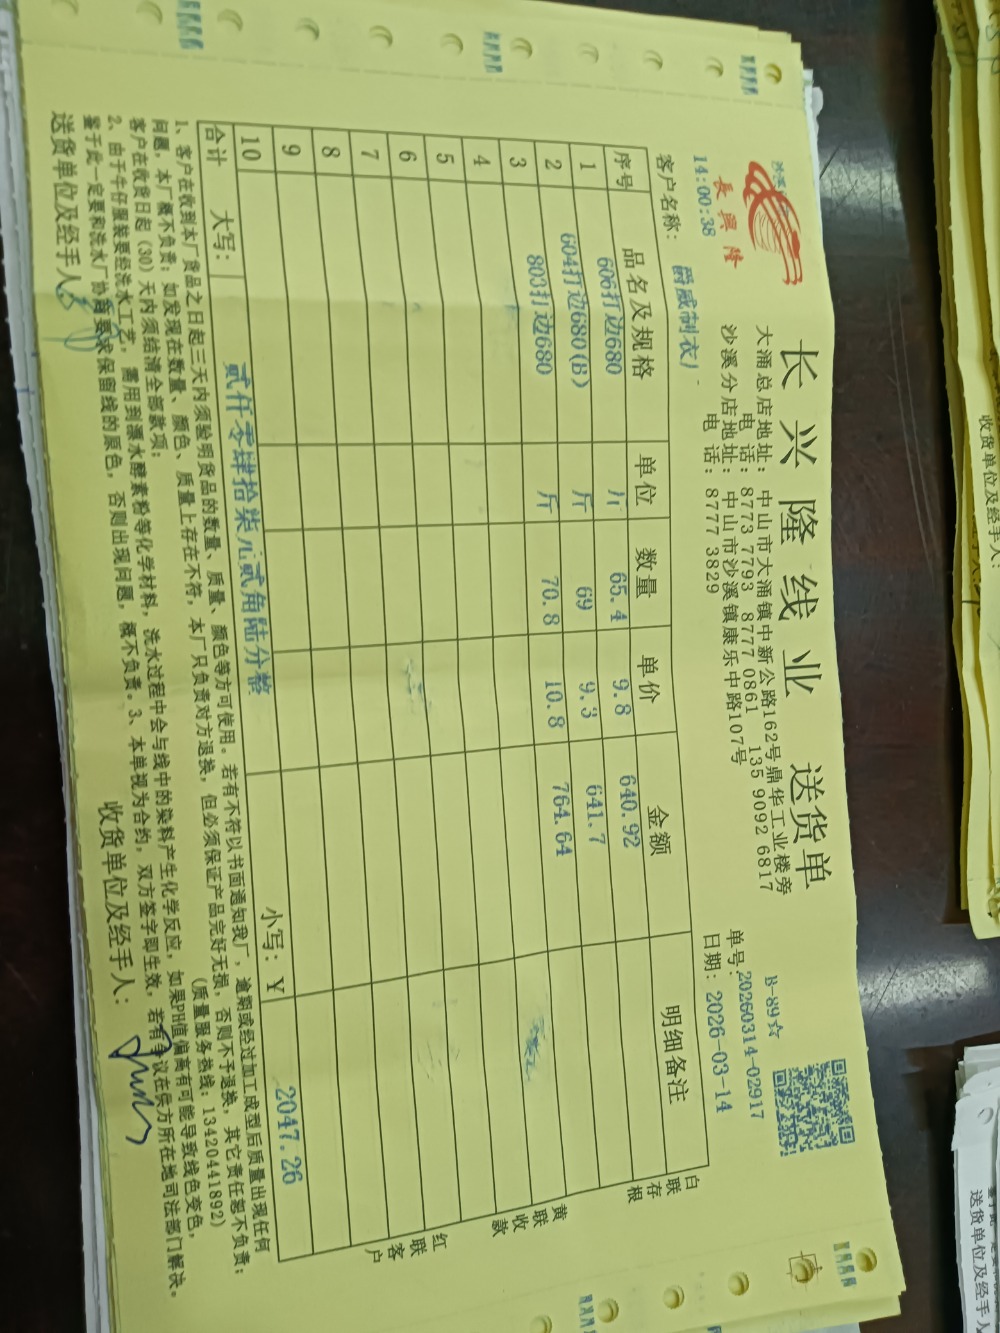 长兴隆线业 送货单
長興隆
大涌总店地址：中山市大涌镇中新公路162号鼎华工业楼旁
电话：8773 7793 8777 0861 135 9092 6817
沙溪分店地址：中山市沙溪镇康乐中路107号
电话：8777 3829
B-89☆
单号：20260314-02917
日期：2026-03-14
14:00:38
客户名称：爵威制衣厂
序号 品名及规格 单位 数量 单价 金额 明细备注
1 606打边680 斤 65.4 9.8 640.92
2 604打边680(B) 斤 69 9.3 641.7
3 803打边680 斤 70.8 10.8 764.64
4
5
6
7
8
9
10
合计 大写：贰仟零肆拾柒元贰角陆分整 小写：￥ 2047.26
白联存根
黄联收款
红联客户
1、客户在收到本厂货品之日起三天内须验明货品的数量、质量、颜色等方可使用。若有不符以书面通知我厂，逾期或经过加工成型后质量出现任何
问题，本厂概不负责；如发现在数量、颜色、质量上存在不符，本厂只负责对方退换，但必须保证产品完好无损，否则不予退换，其它责任恕不负责；
客户在收货日起（30）天内须结清全部款项； （质量服务热线：13420441892）
2、由于牛仔服装要经洗水工艺，需用到漂水酵素粉等化学材料，洗水过程中会与线中的染料产生化学反应，如果PH值偏高有可能导致线色变色，
鉴于此一定要和洗水厂协商要求保留线的原色，否则出现问题，概不负责。3、本单视为合约，双方签字即生效，若有争议在供方所在地司法部门解决。
送货单位及经手人： 收货单位及经手人：
收货单位及经手人：
送货单位及经手人